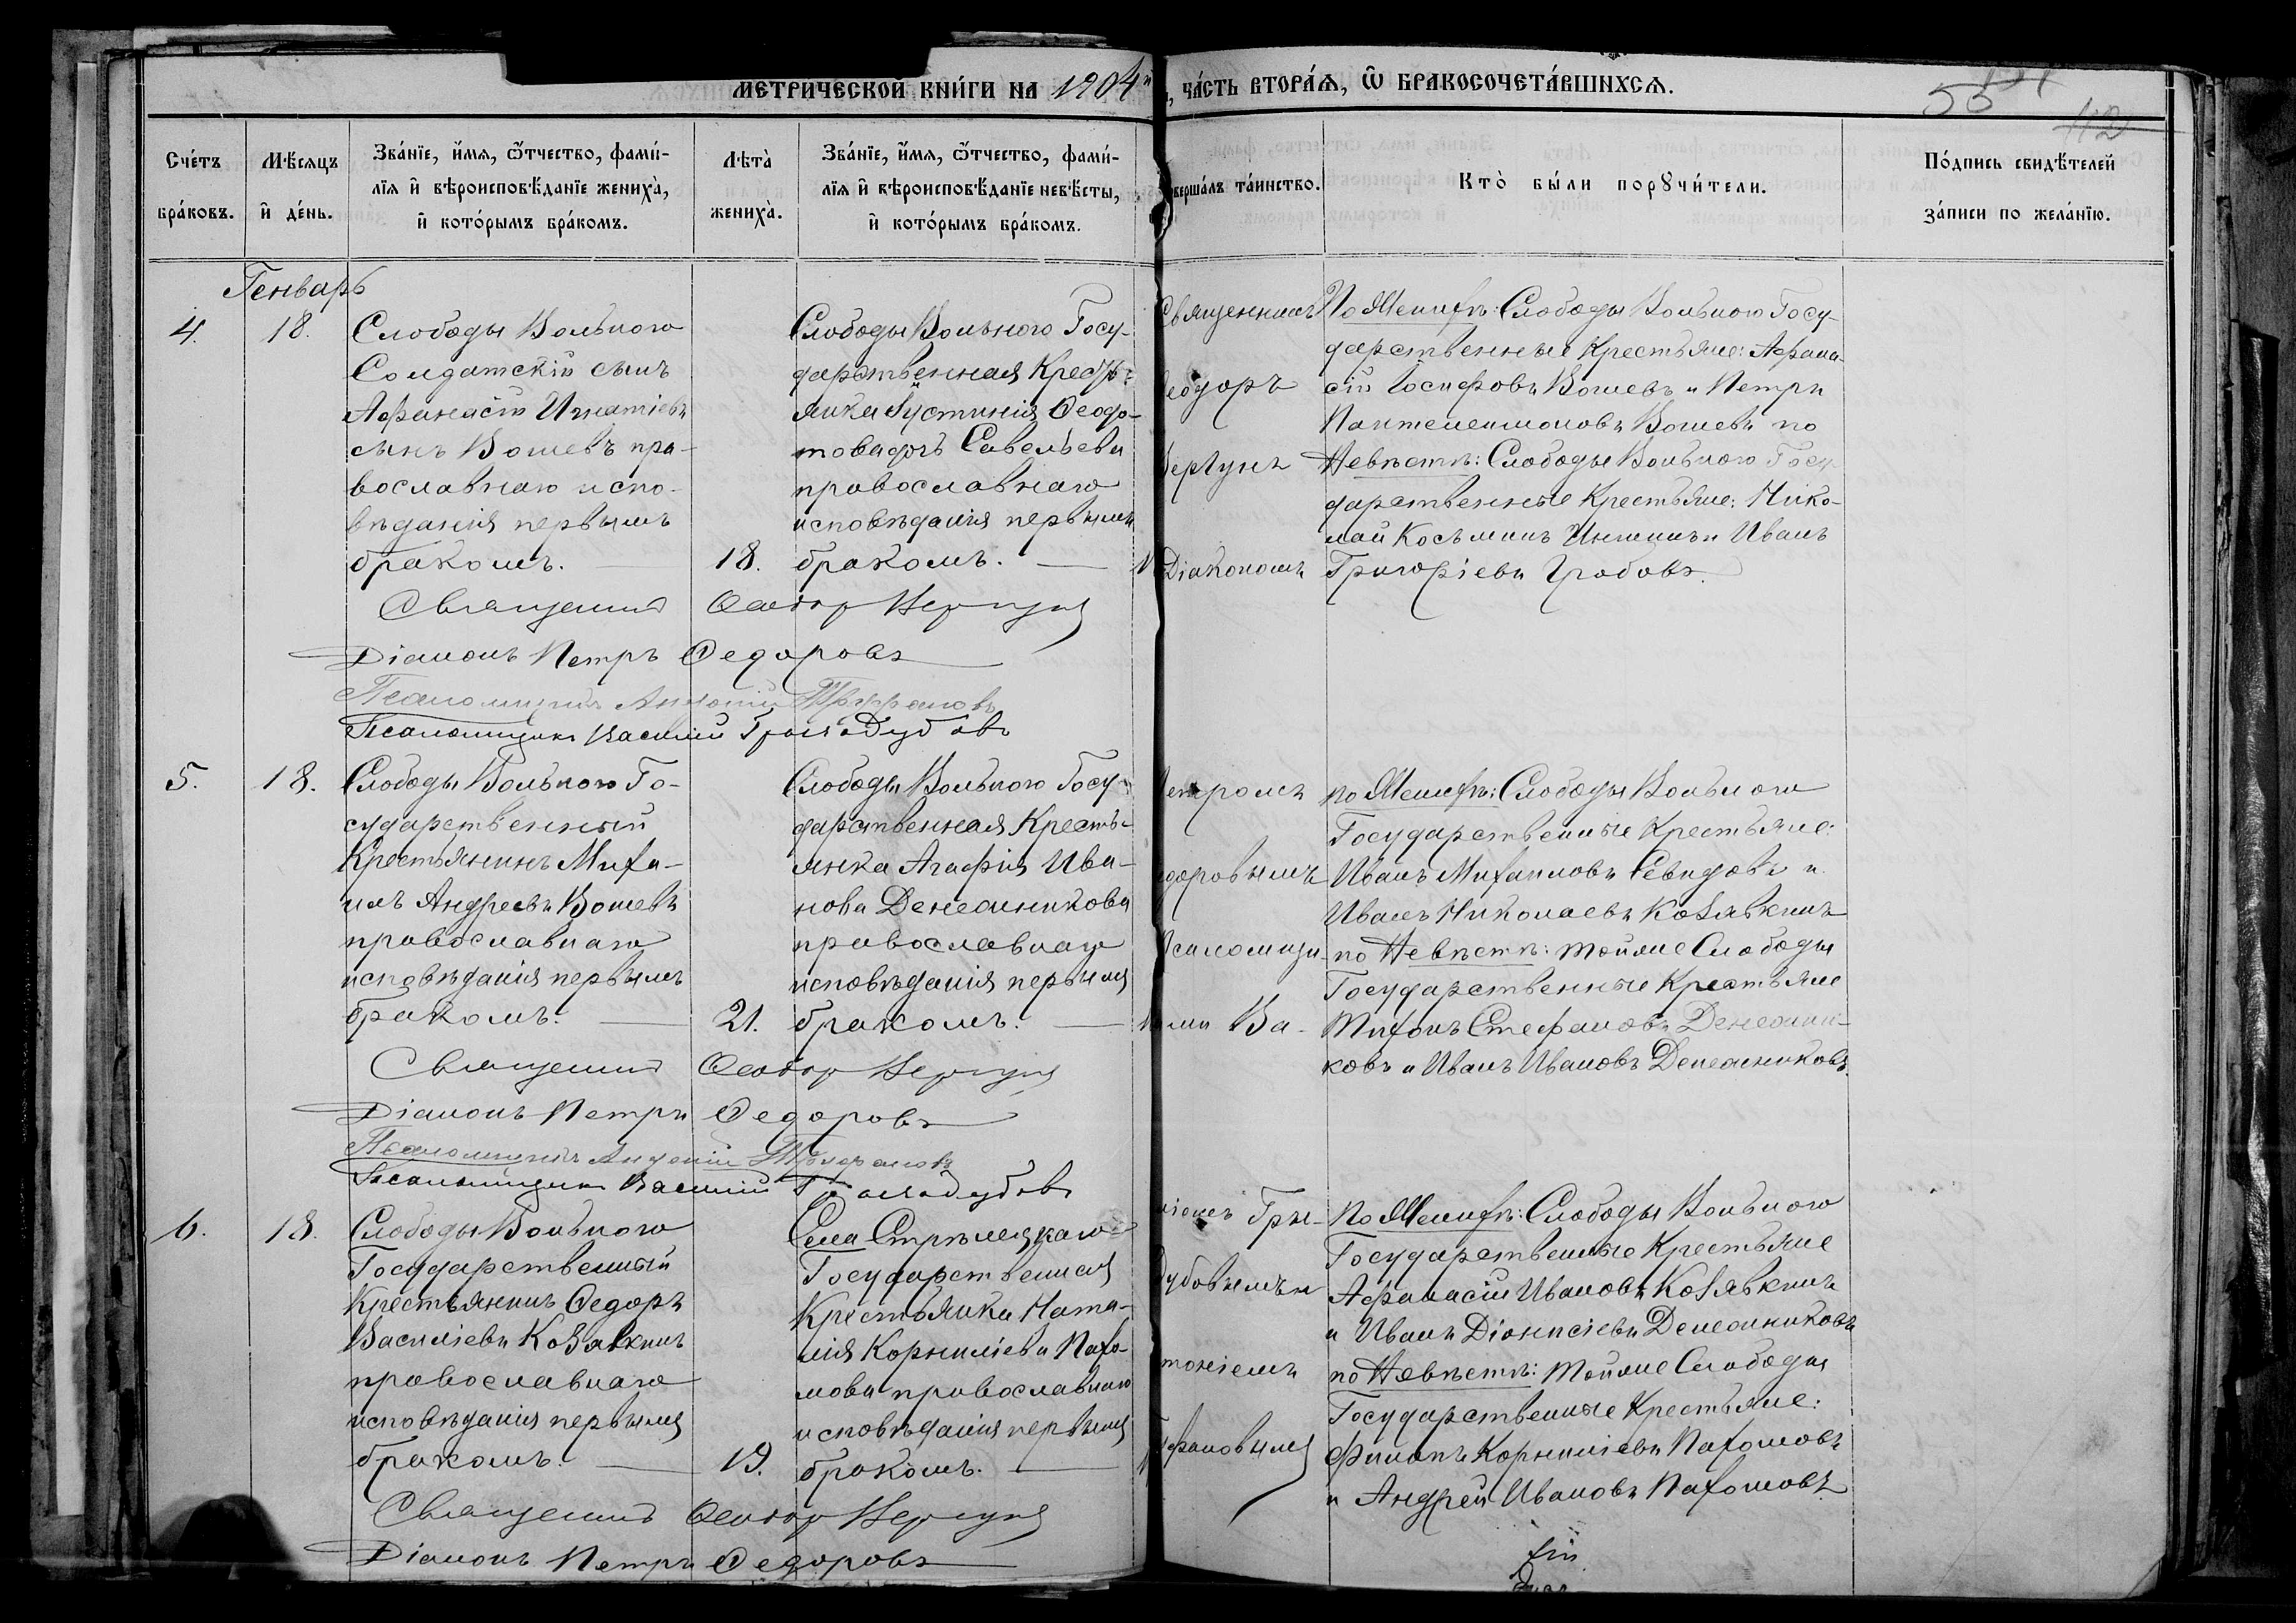 МЕТРИЧЕСКОЙ КНИ́ГИ НА 1904й
ЧА́СТЬ ВТОРА́Ѧ, Ѿ БРАКОСОЧЕТА́ВШИХСѦ.
55
112
Сче́тъ бра́ковъ.
Мѣ́сяцъ и҆ де́нь.
Зва́нїе, и҆́мѧ, ѻ҆́тчество, фами́-
лїѧ и҆ вѣроисповѣ́данїе жениха̀,
и҆ кото́рымъ бра́комъ.
Лѣта̀ жениха̀.
Зва́нїе, и҆́мѧ, ѻ҆́тчество, фами́-
лїѧ и҆ вѣроисповѣ́данїе невѣ́сты,
и҆ кото́рымъ бра́комъ.
верша́лъ та́инство.
Кто̀ бы́ли порꙋчи́тели.
По́дпись свидѣ́телей
за́писи по жела́нїю.
Генварь
4.
18.
Слободы Вольного
Солдатскій сынъ
Афанасій Игнатіевъ
сынъ Вошевъ пра-
вославнаго испо-
вѣданія первымъ
бракомъ.
18.
Слободы Вольного Госу-
дарственная Кресть-
янка Іустинія Ѳеодо-
това дочь Савельева
православнаго
исповѣданія первымъ
бракомъ.
Священникъ
еодоръ
ергунъ
Діакономъ
По Женихѣ: Слободы Вольного Госу-
дарственные Крестьяне: Афана-
сій Іосифовъ Вошевъ и Петръ
Пантелеимоновъ Вошевъ по
Невѣстѣ: Слободы Вольного Госу-
дарственные Крестьяне: Нико-
лай Косьминъ и Иванъ
Григоріевъ Гробовъ.
Священникъ Ѳеодор Вергунъ
Діаконъ Петръ Ѳедоровъ
Псаломщикъ Антоній
Псаломщикъ Василій Гризодубовъ
5.
18.
Слободы Вольного Го-
сударственный
Крестьянинъ Миха-
илъ Андреевъ Вошевъ
православнаго
исповѣданія первымъ
бракомъ.
21.
Слободы Вольного Госу-
дарственная Кресть-
янка Агафія Ива-
нова Денежникова
православнаго
исповѣданія первымъ
бракомъ.
етромъ
доровымъ
Псаломщи-
ками Ва-
по Женихѣ: Слободы Вольного
Государственные Крестьяне:
Иванъ Михаиловъ Севидовъ и
Иванъ Николаевъ Козявкинъ
по Невѣстѣ: тойже Слободы
Государственные Крестьяне
Тихонъ Стефановъ Денежни-
ковъ и Иванъ Ивановъ Денежниковъ.
Священникъ Ѳеодор Вергунъ
Діаконъ Петръ Ѳедоровъ
Псаломщикъ Антоній
Псаломщикъ Василій Гризодубовъ
6.
18.
Слободы Вольного
Государственный
Крестьянинъ Ѳедоръ
Василіевъ Козявкинъ
православнаго
исповѣданія первымъ
бракомъ.
19.
Села Стрѣлецкаго
Государственная
Крестьянка Ната-
лія Корниліева Пахо-
мова православнаго
исповѣданія первымъ
бракомъ.
ліемъ Гри-
дубовымъ и
тоніемъ
фановымъ
По Женихѣ: Слободы Вольного
Государственные Крестьяне
Афанасій Ивановъ Козявкинъ
и Иванъ Діонисіевъ Денежниковъ
по Невѣстѣ: тойже Слободы
Государственные Крестьяне:
Филипъ Корниліевъ Пахомовъ
и Андрей Ивановъ Пахомовъ.
Священникъ Ѳеодор Вергунъ
Діаконъ Петръ Ѳедоровъ